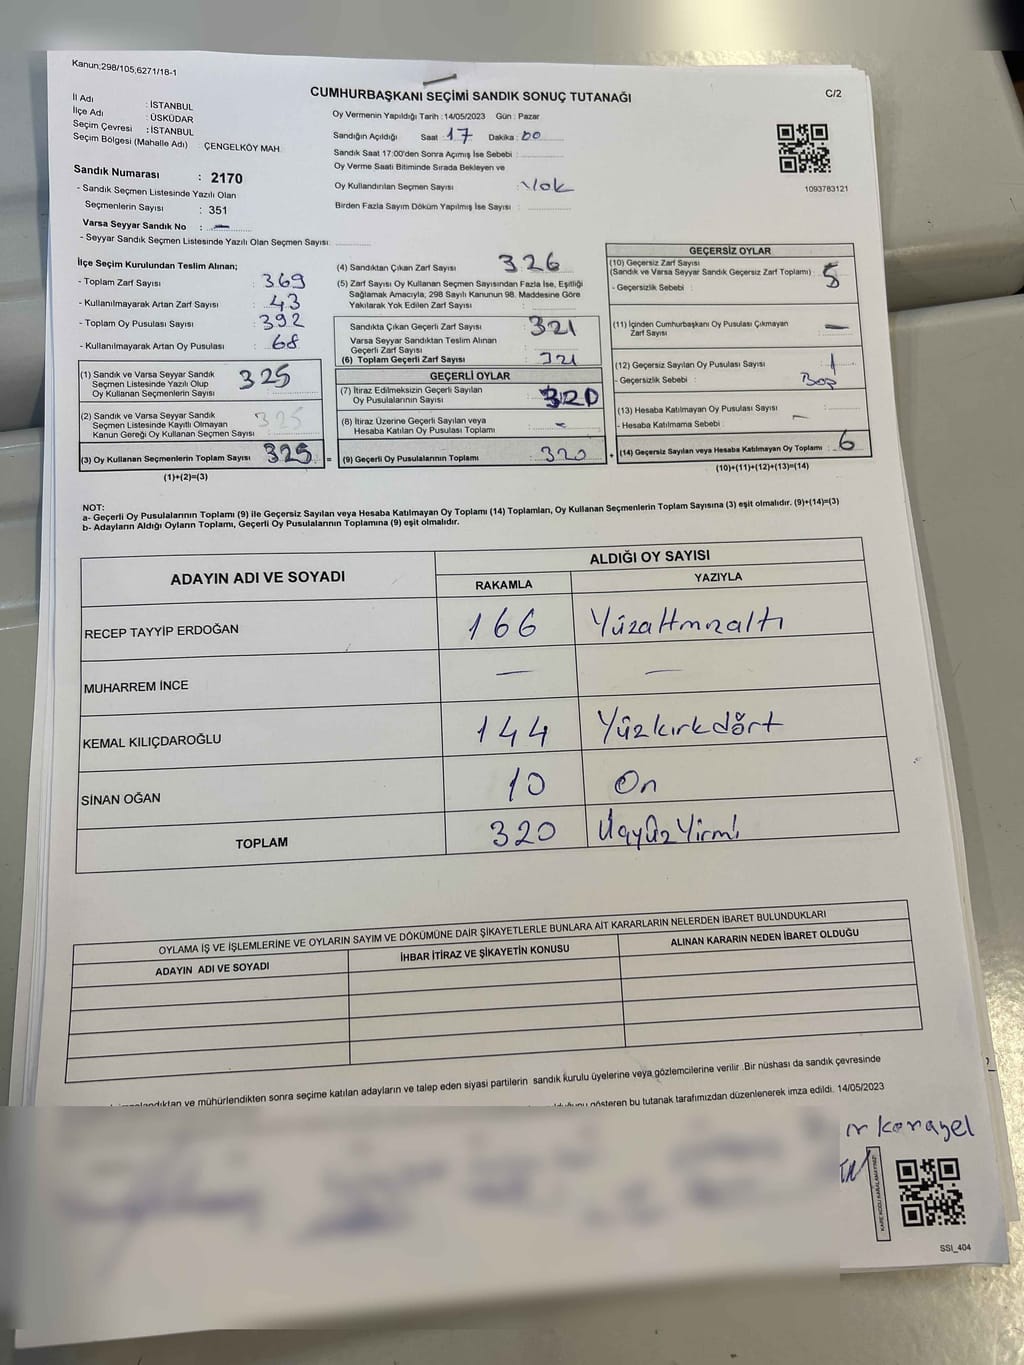 Kanun;298/105;6271/18-1
C/2
CUMHURBAŞKANI SEÇİMİ SANDIK SONUÇ TUTANAĞI
İl Adı : İSTANBUL
İlçe Adı : ÜSKÜDAR
Seçim Çevresi : İSTANBUL
Seçim Bölgesi (Mahalle Adı) : ÇENGELKÖY MAH.
Sandık Numarası : 2170
- Sandık Seçmen Listesinde Yazılı Olan
Seçmenlerin Sayısı : 351
Varsa Seyyar Sandık No : —
- Seyyar Sandık Seçmen Listesinde Yazılı Olan Seçmen Sayısı:
Oy Vermenin Yapıldığı Tarih : 14/05/2023 Gün : Pazar
Sandığın Açıldığı Saat : 17 Dakika : 00
Sandık Saat 17:00'den Sonra Açımış İse Sebebi :
Oy Verme Saati Bitiminde Sırada Bekleyen ve
Oy Kullandırılan Seçmen Sayısı : Yok
Birden Fazla Sayım Döküm Yapılmış İse Sayısı :
1093783121
İlçe Seçim Kurulundan Teslim Alınan;
- Toplam Zarf Sayısı : 369
- Kullanılmayarak Artan Zarf Sayısı : 43
- Toplam Oy Pusulası Sayısı : 392
- Kullanılmayarak Artan Oy Pusulası : 68
(1) Sandık ve Varsa Seyyar Sandık
Seçmen Listesinde Yazılı Olup
Oy Kullanan Seçmenlerin Sayısı : 325
(2) Sandık ve Varsa Seyyar Sandık
Seçmen Listesinde Kayıtlı Olmayan
Kanun Gereği Oy Kullanan Seçmen Sayısı : 325
(3) Oy Kullanan Seçmenlerin Toplam Sayısı : 325
(1)+(2)=(3)
(4) Sandıktan Çıkan Zarf Sayısı : 326
(5) Zarf Sayısı Oy Kullanan Seçmen Sayısından Fazla İse, Eşitliği
Sağlamak Amacıyla; 298 Sayılı Kanunun 98. Maddesine Göre
Yakılarak Yok Edilen Zarf Sayısı :
Sandıkta Çıkan Geçerli Zarf Sayısı : 321
Varsa Seyyar Sandıktan Teslim Alınan
Geçerli Zarf Sayısı :
(6) Toplam Geçerli Zarf Sayısı : 321
GEÇERLİ OYLAR
(7) İtiraz Edilmeksizin Geçerli Sayılan
Oy Pusulalarının Sayısı : 320
(8) İtiraz Üzerine Geçerli Sayılan veya
Hesaba Katılan Oy Pusulası Toplamı : -
= (9) Geçerli Oy Pusulalarının Toplamı : 320
GEÇERSİZ OYLAR
(10) Geçersiz Zarf Sayısı
(Sandık ve Varsa Seyyar Sandık Geçersiz Zarf Toplamı) : 5
- Geçersizlik Sebebi :
(11) İçinden Cumhurbaşkanı Oy Pusulası Çıkmayan
Zarf Sayısı : —
(12) Geçersiz Sayılan Oy Pusulası Sayısı : 1
- Geçersizlik Sebebi :
(13) Hesaba Katılmayan Oy Pusulası Sayısı : —
- Hesaba Katılmama Sebebi :
+ (14) Geçersiz Sayılan veya Hesaba Katılmayan Oy Toplamı : 6
(10)+(11)+(12)+(13)=(14)
NOT:
a- Geçerli Oy Pusulalarının Toplamı (9) ile Geçersiz Sayılan veya Hesaba Katılmayan Oy Toplamı (14) Toplamları, Oy Kullanan Seçmenlerin Toplam Sayısına (3) eşit olmalıdır. (9)+(14)=(3)
b- Adayların Aldığı Oyların Toplamı, Geçerli Oy Pusulalarının Toplamına (9) eşit olmalıdır.
ADAYIN ADI VE SOYADI
ALDIĞI OY SAYISI
RAKAMLA YAZIYLA
RECEP TAYYİP ERDOĞAN 166 Yüzaltmızaltı
MUHARREM İNCE — —
KEMAL KILIÇDAROĞLU 144 Yüzkırkdört
SİNAN OĞAN 10 On
TOPLAM 320 Üçyüz Yirmi
OYLAMA İŞ VE İŞLEMLERİNE VE OYLARIN SAYIM VE DÖKÜMÜNE DAİR ŞİKAYETLERLE BUNLARA AİT KARARLARIN NELERDEN İBARET BULUNDUKLARI
ADAYIN ADI VE SOYADI İHBAR İTİRAZ VE ŞİKAYETİN KONUSU ALINAN KARARIN NEDEN İBARET OLDUĞU
ve mühürlendikten sonra seçime katılan adayların ve talep eden siyasi partilerin sandık kurulu üyelerine veya gözlemcilerine verilir .Bir nüshası da sandık çevresinde
gösteren bu tutanak tarafımızdan düzenlenerek imza edildi. 14/05/2023
SSI_404